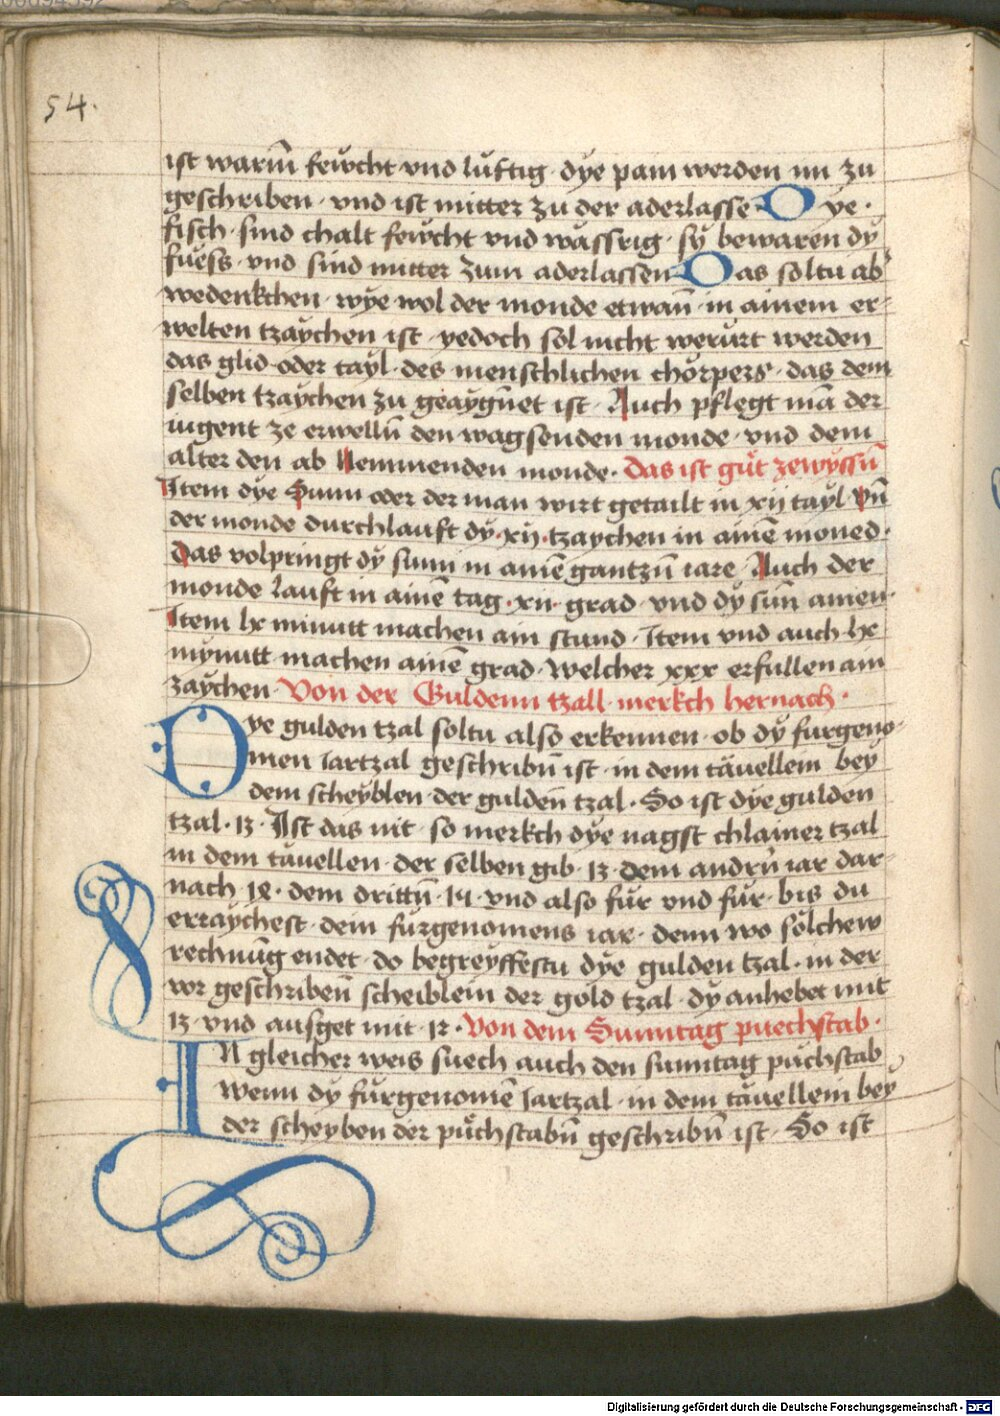 54.
ist warm̄ fewcht vnd lúftig · dÿe pam werden im zu
geschriben · vnd ist mitter zu der aderlasse · Dye ·
fisch · sind chalt fewcht vnd wássrig · sÿ bewaren dÿ
fuess · vnd sind mitter zum aderlassen · Das soltu ab
wedenkchen · wÿe wol der monde etwan̄ · in ainem er-
welten tzaÿchen ist · yedoch sol nicht werúrt werden
das glid · oder taÿl · des menschlichen chörpers · das dem
selben tzaÿchen zu geaÿgn̄et ist · Auch pflegt mā der
iugent ze erwelln̄ den wagsenden monde · vnd dem
alter den ab Nemmenden monde · das ist gút zewÿssn̄
Item dÿe Sunn oder der man wirt getailt in xij taÿl vn̄
der monde durchlauft dÿ · xij · tzaychen in ainē moned ·
Das volpringt dÿ sunn in ainē gantzn̄ iare · Auch der
monde Lauft in ainē tag · xii · grad · vnd dÿ sun̄ ainen ·
Item lx minutt machen ain stund · Item vnd auch lx
mÿnutt machen ainē grad · welcher xxx erfullen ain
zaychen · Von der Guldenn tzall merkch hernach ·
Dye gulden tzal soltu also erkennen · ob dÿ furgeno-
men Iartzal geschribn̄ ist · in dem táuellein bey
dem scheÿblen · der gulden̄ tzal · So ist dÿe gulden
tzal · 13 · Ist das nit · so merkch dÿe nagst chlainer tzal
in dem táuellen · der selben gib · 13 · dem andrn̄ iar dar-
nach 18 · dem drittn̄ · 14 · vnd also fúr vnd fúr · bis du
erraÿchest · dein fúrgenomens iar · denn wo sölchew
rechnūg endet · do begreÿffestu dÿe gulden tzal · in der
vor geschriben̄ scheiblein der gold tzal · dÿ anhebet mit
13 · vnd ausget mit · 12 · Von dem Sunntag puechstab ·
IN gleicher weis suech auch den sunntag púchstab
wenn dÿ fúrgenomē Iartzal · in dem táuellein beÿ
der scheyben der púchstabn̄ geschribn̄ ist · So ist
Digitalisierung gefördert durch die Deutsche Forschungsgemeinschaft - DFG